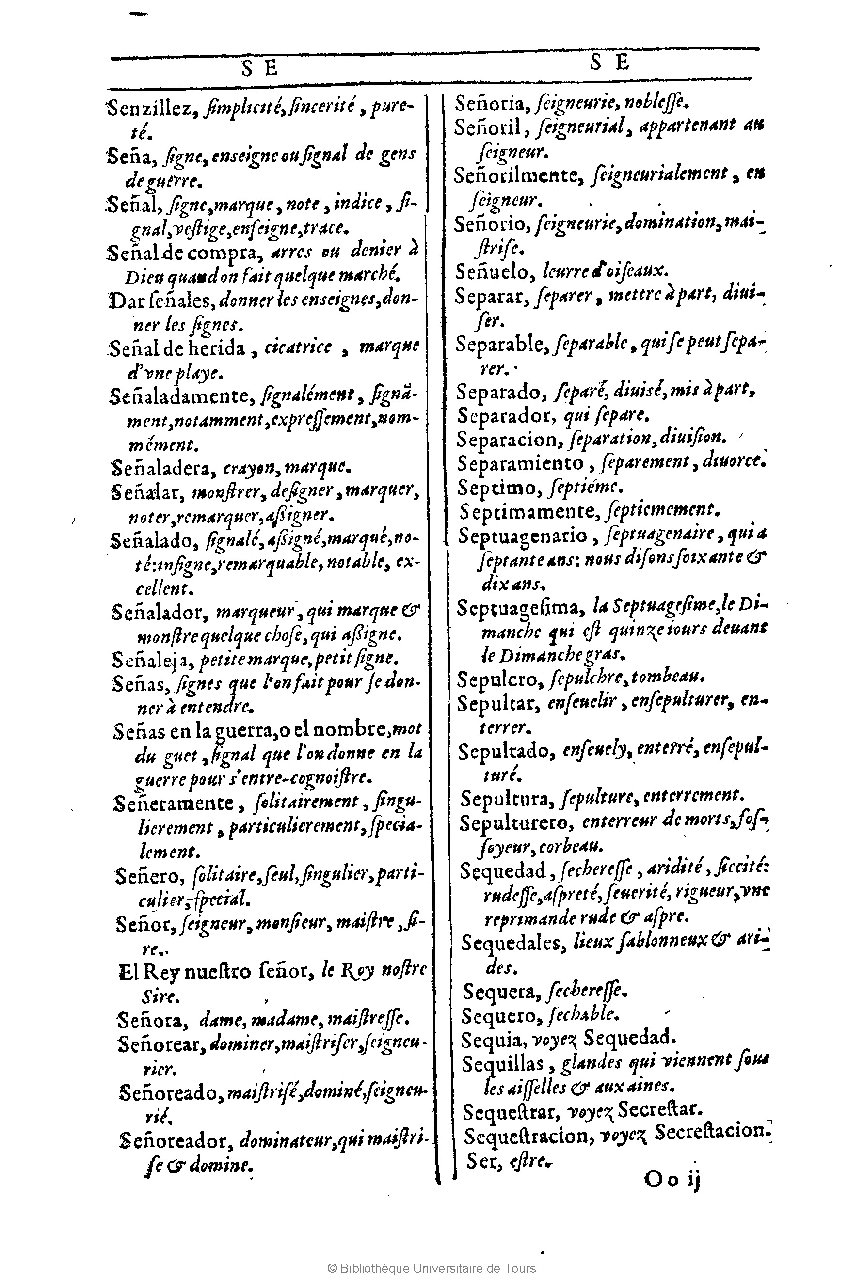 S E
Senzillez, ſimplicité, ſincerité, pure-
té.
Seña, ſigne, enseigne ou ſignal de gens
de guerre.
Señal, ſigne, marque, note, indice, ſi-
gnal, veſtige, enſeigne, trace.
Señal de compra, arres ou denier à
Dieu quand on fait quelque marché.
Dar ſeñales, donner les enseignes, don-
ner les ſignes.
Señal de herida, cicatrice, marque
d'vne playe.
Señaladamente, ſignalément, ſignã-
ment, notamment, expreſſement, nom-
mément.
Señaladera, crayon, marque.
Señalar, monſtrer, deſigner, marquer,
noter, remarquer, aſsigner.
Señalado, ſignalé, aſsigné, marqué, no-
té: inſigne, remarquable, notable, ex-
cellent.
Señalador, marqueur, qui marque &
monſtre quelque choſe, qui aſsigne.
Señaleja, petite marque, petit ſigne.
Señas, ſignes que l'on fait pour ſe don-
ner à entendre.
Señas en la guerra, o el nombre, mot
du guet, ſignal que l'on donne en la
guerre pour s'entre-cognoiſtre.
Señeramente, ſolitairement, ſingu-
lierement, particulierement, ſpecia-
lement.
Señero, ſolitaire, ſeul, ſingulier, parti-
culier, ſpecial.
Señor, ſeigneur, monſieur, maiſtre, ſi-
re.
El Rey nueſtro ſeñor, le Roy noſtre
Sire.
Señora, dame, madame, maiſtreſſe.
Señorear, dominer, maiſtriſer, ſeigneu-
rier.
Señoreado, maiſtriſé, dominé, ſeigneu-
rié.
Señoreador, dominateur, qui maiſtri-
ſe & domine.
S E
Señoria, ſeigneurie, nobleſſe.
Señoril, ſeigneurial, appartenant au
ſeigneur.
Señorilmente, ſeigneurialement, en
ſeigneur.
Señorio, ſeigneurie, domination, mai-
ſtriſe.
Señuelo, leurre d'oiſeaux.
Separar, ſeparer, mettre à part, diui-
ſer.
Separable, ſeparable, qui ſe peut ſepa-
rer.
Separado, ſeparé, diuisé, mis à part.
Separador, qui ſepare.
Separacion, ſeparation, diuiſion.
Separamiento, ſeparement, diuorce.
Septimo, ſeptiéme.
Septimamente, ſeptiémement.
Septuagenario, ſeptuagenaire, qui a
ſeptante ans: nous diſons ſoixante &
dix ans.
Septuageſima, la Septuageſime, le Di-
manche qui eſt quinze iours deuant
le Dimanche gras.
Sepulcro, ſepulchre, tombeau.
Sepultar, enſeuelir, enſepulturer, en-
terrer.
Sepultado, enſeuely, enterré, enſepul-
turé.
Sepultura, ſepulture, enterrement.
Sepulturero, enterreur de morts, foſ-
ſoyeur, corbeau.
Sequedad, ſechereſſe, aridité, ſiccité:
rudeſſe, aſpreté, ſeuerité, rigueur, vne
reprimande rude & aſpre.
Sequedales, lieux ſablonneux & ari-
des.
Sequera, ſechereſſe.
Sequero, ſechable.
Sequia, voyez Sequedad.
Sequillas, glandes qui viennent ſous
les aiſſelles & aux aines.
Sequeſtrar, voyez Secreſtar.
Sequeſtracion, voyez Secreſtacion.
Ser, eſtre.
O o ij
© Bibliothèque Universitaire de Tours